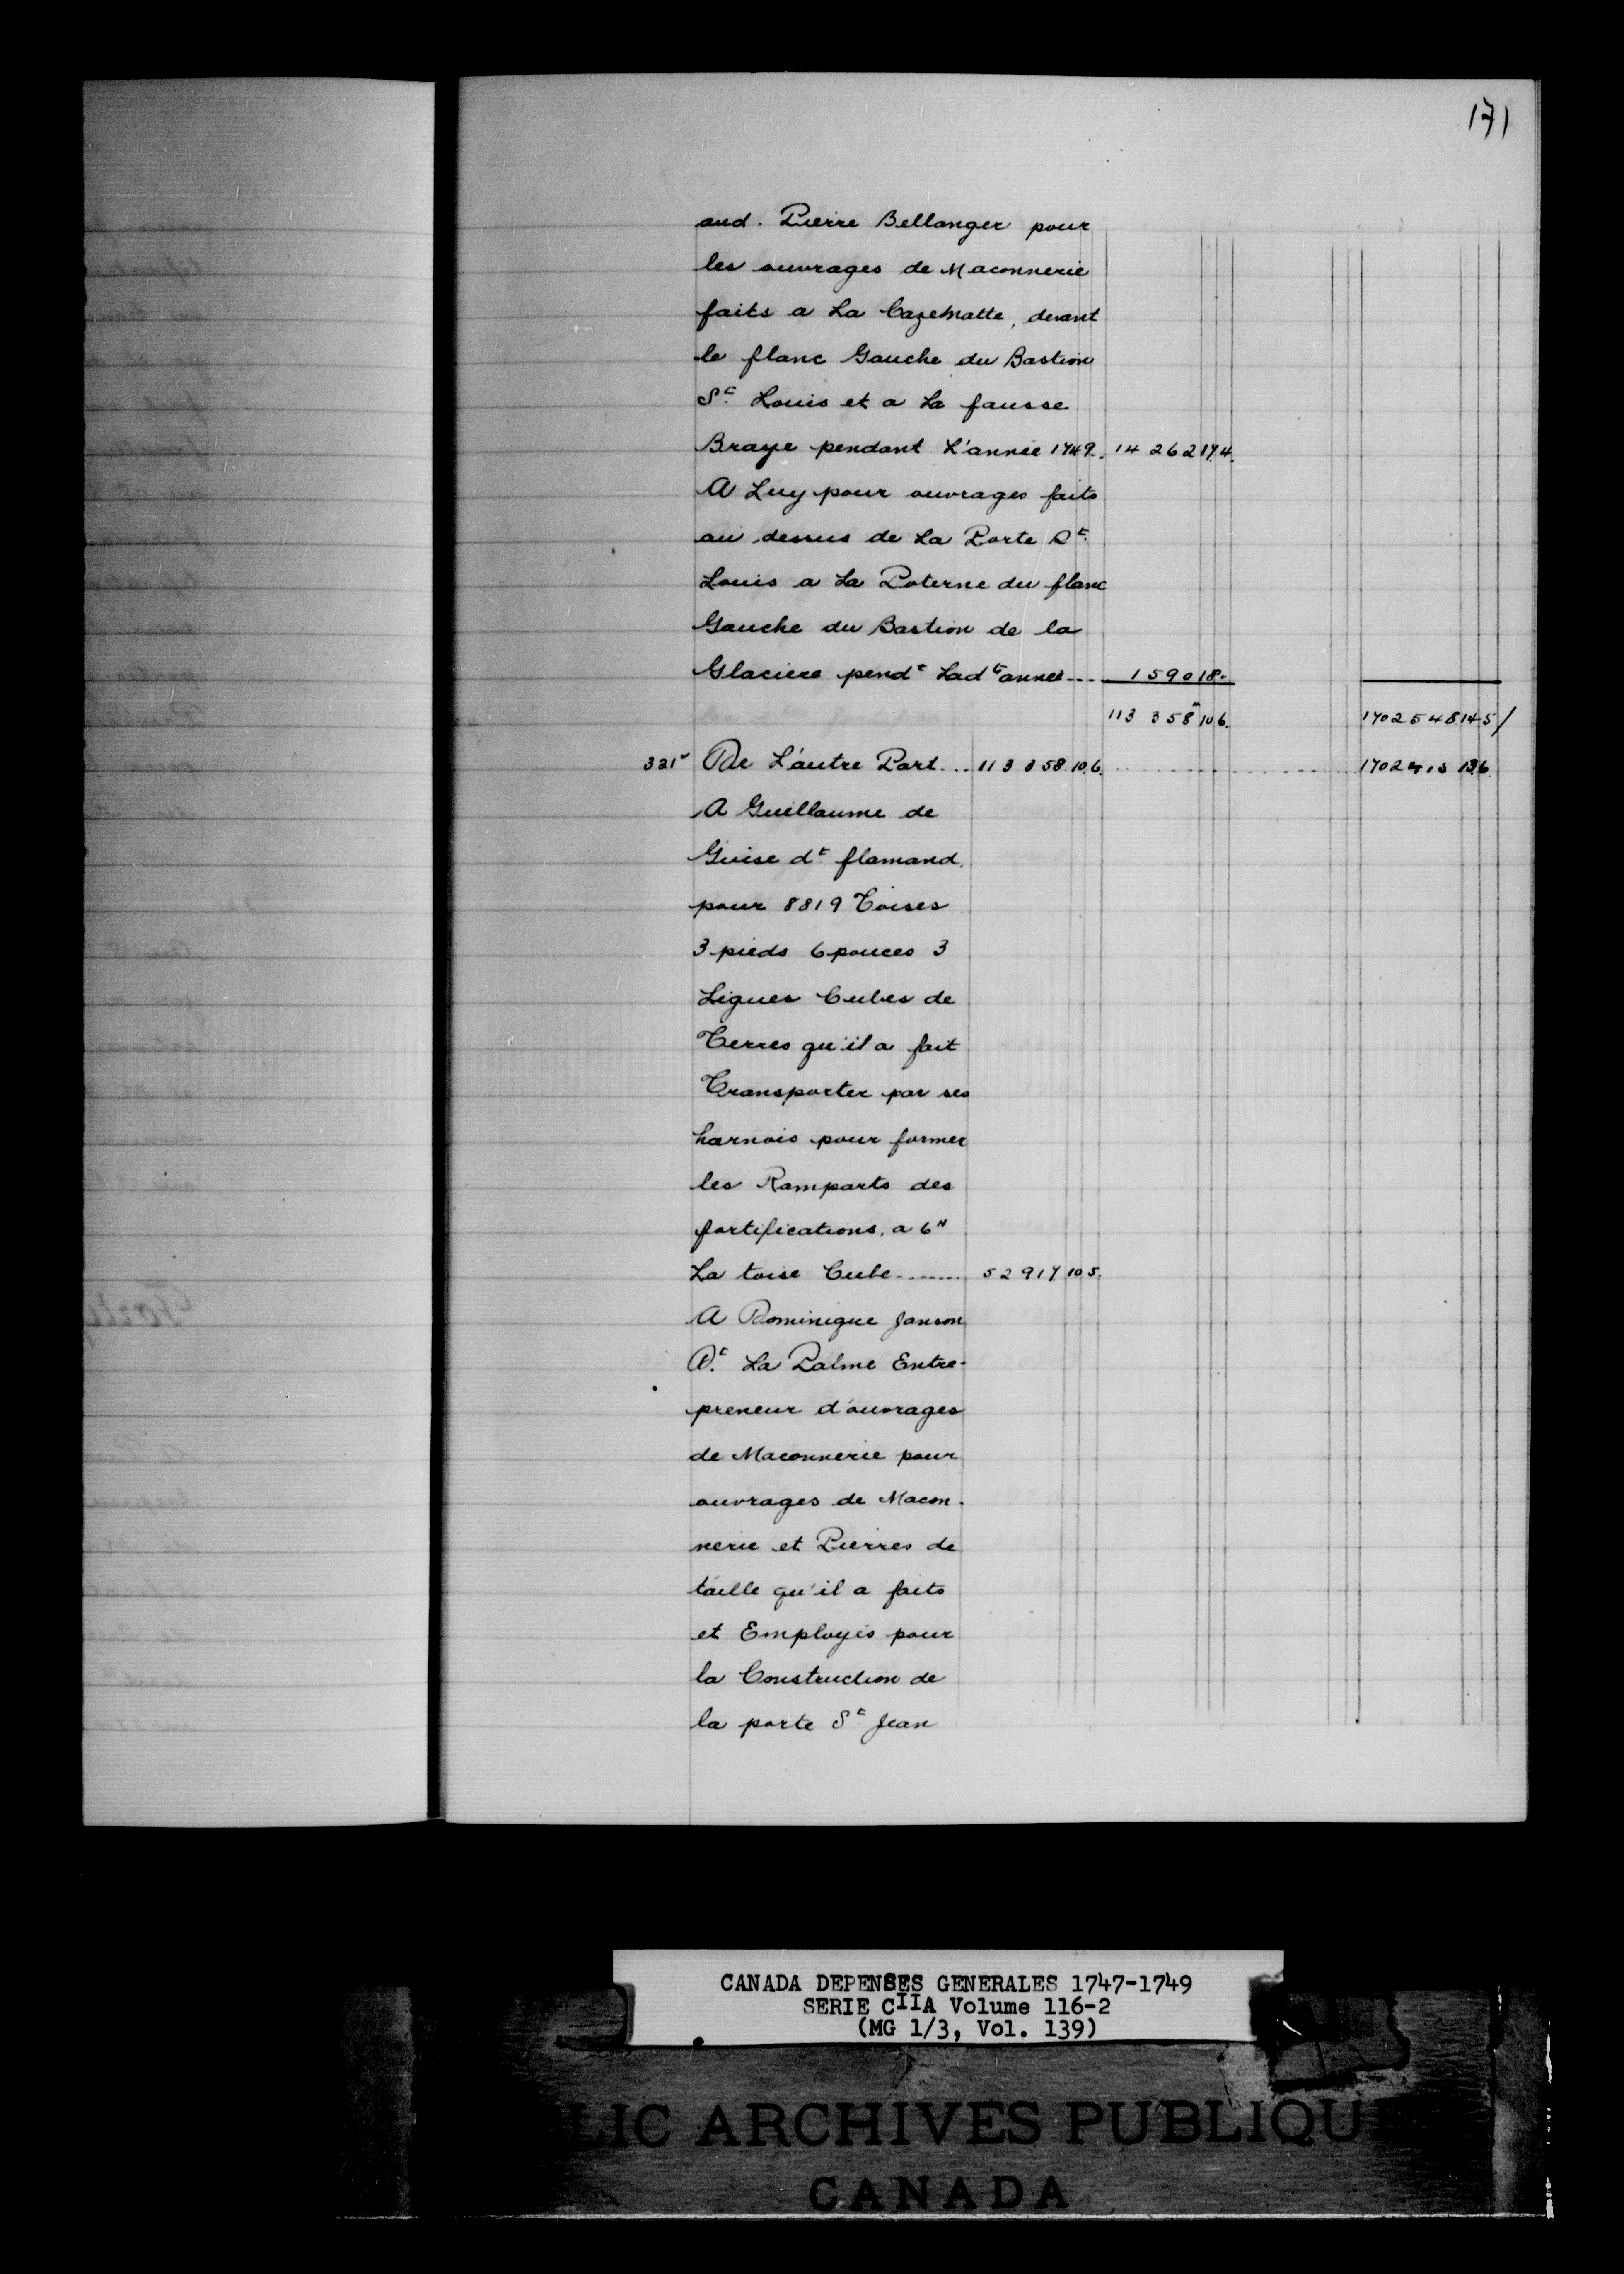 171
aud. Pierre Bellanger pour
les ouvrages de Maconnerie
faits a La Cazematte, devant
le flanc Gauche du Bastion
St. Louis et a La fausse
Braye pendant L'année 1749. 14 262 17.4.
A Luy pour ouvrages faits
au dessus de La Porte St.
Louis a La Poterne du flanc
Gauche du Bastion de la
Glaciere pendt Ladte année --- 1590 18 "
113 358" 10.6. 1702548 14 5/
321v De L'autre Part... 113 358.10.6.
A Guillaume de
Guise dt flamand.
pour 8819 Toises
3 pieds 6 pouces 3
Lignes Cubes de
Terres qu'il a fait
Transporter par ses
harnois pour former
les Ramparts des
fortifications, a 6"
La toise Cube ........ 52 917 10 5.
A Dominique Janson
Dt. La Palme Entre-
preneur d'ouvrages
de Maconnerie pour
ouvrages de Macon-
nerie et Pierres de
taille qu'il a faits
et Employés pour
la Construction de
la porte St Jean
CANADA DEPENSES GENERALES 1747-1749
SERIE CIIA Volume 116-2
(MG 1/3, Vol. 139)
LIC ARCHIVES PUBLIQU
CANADA